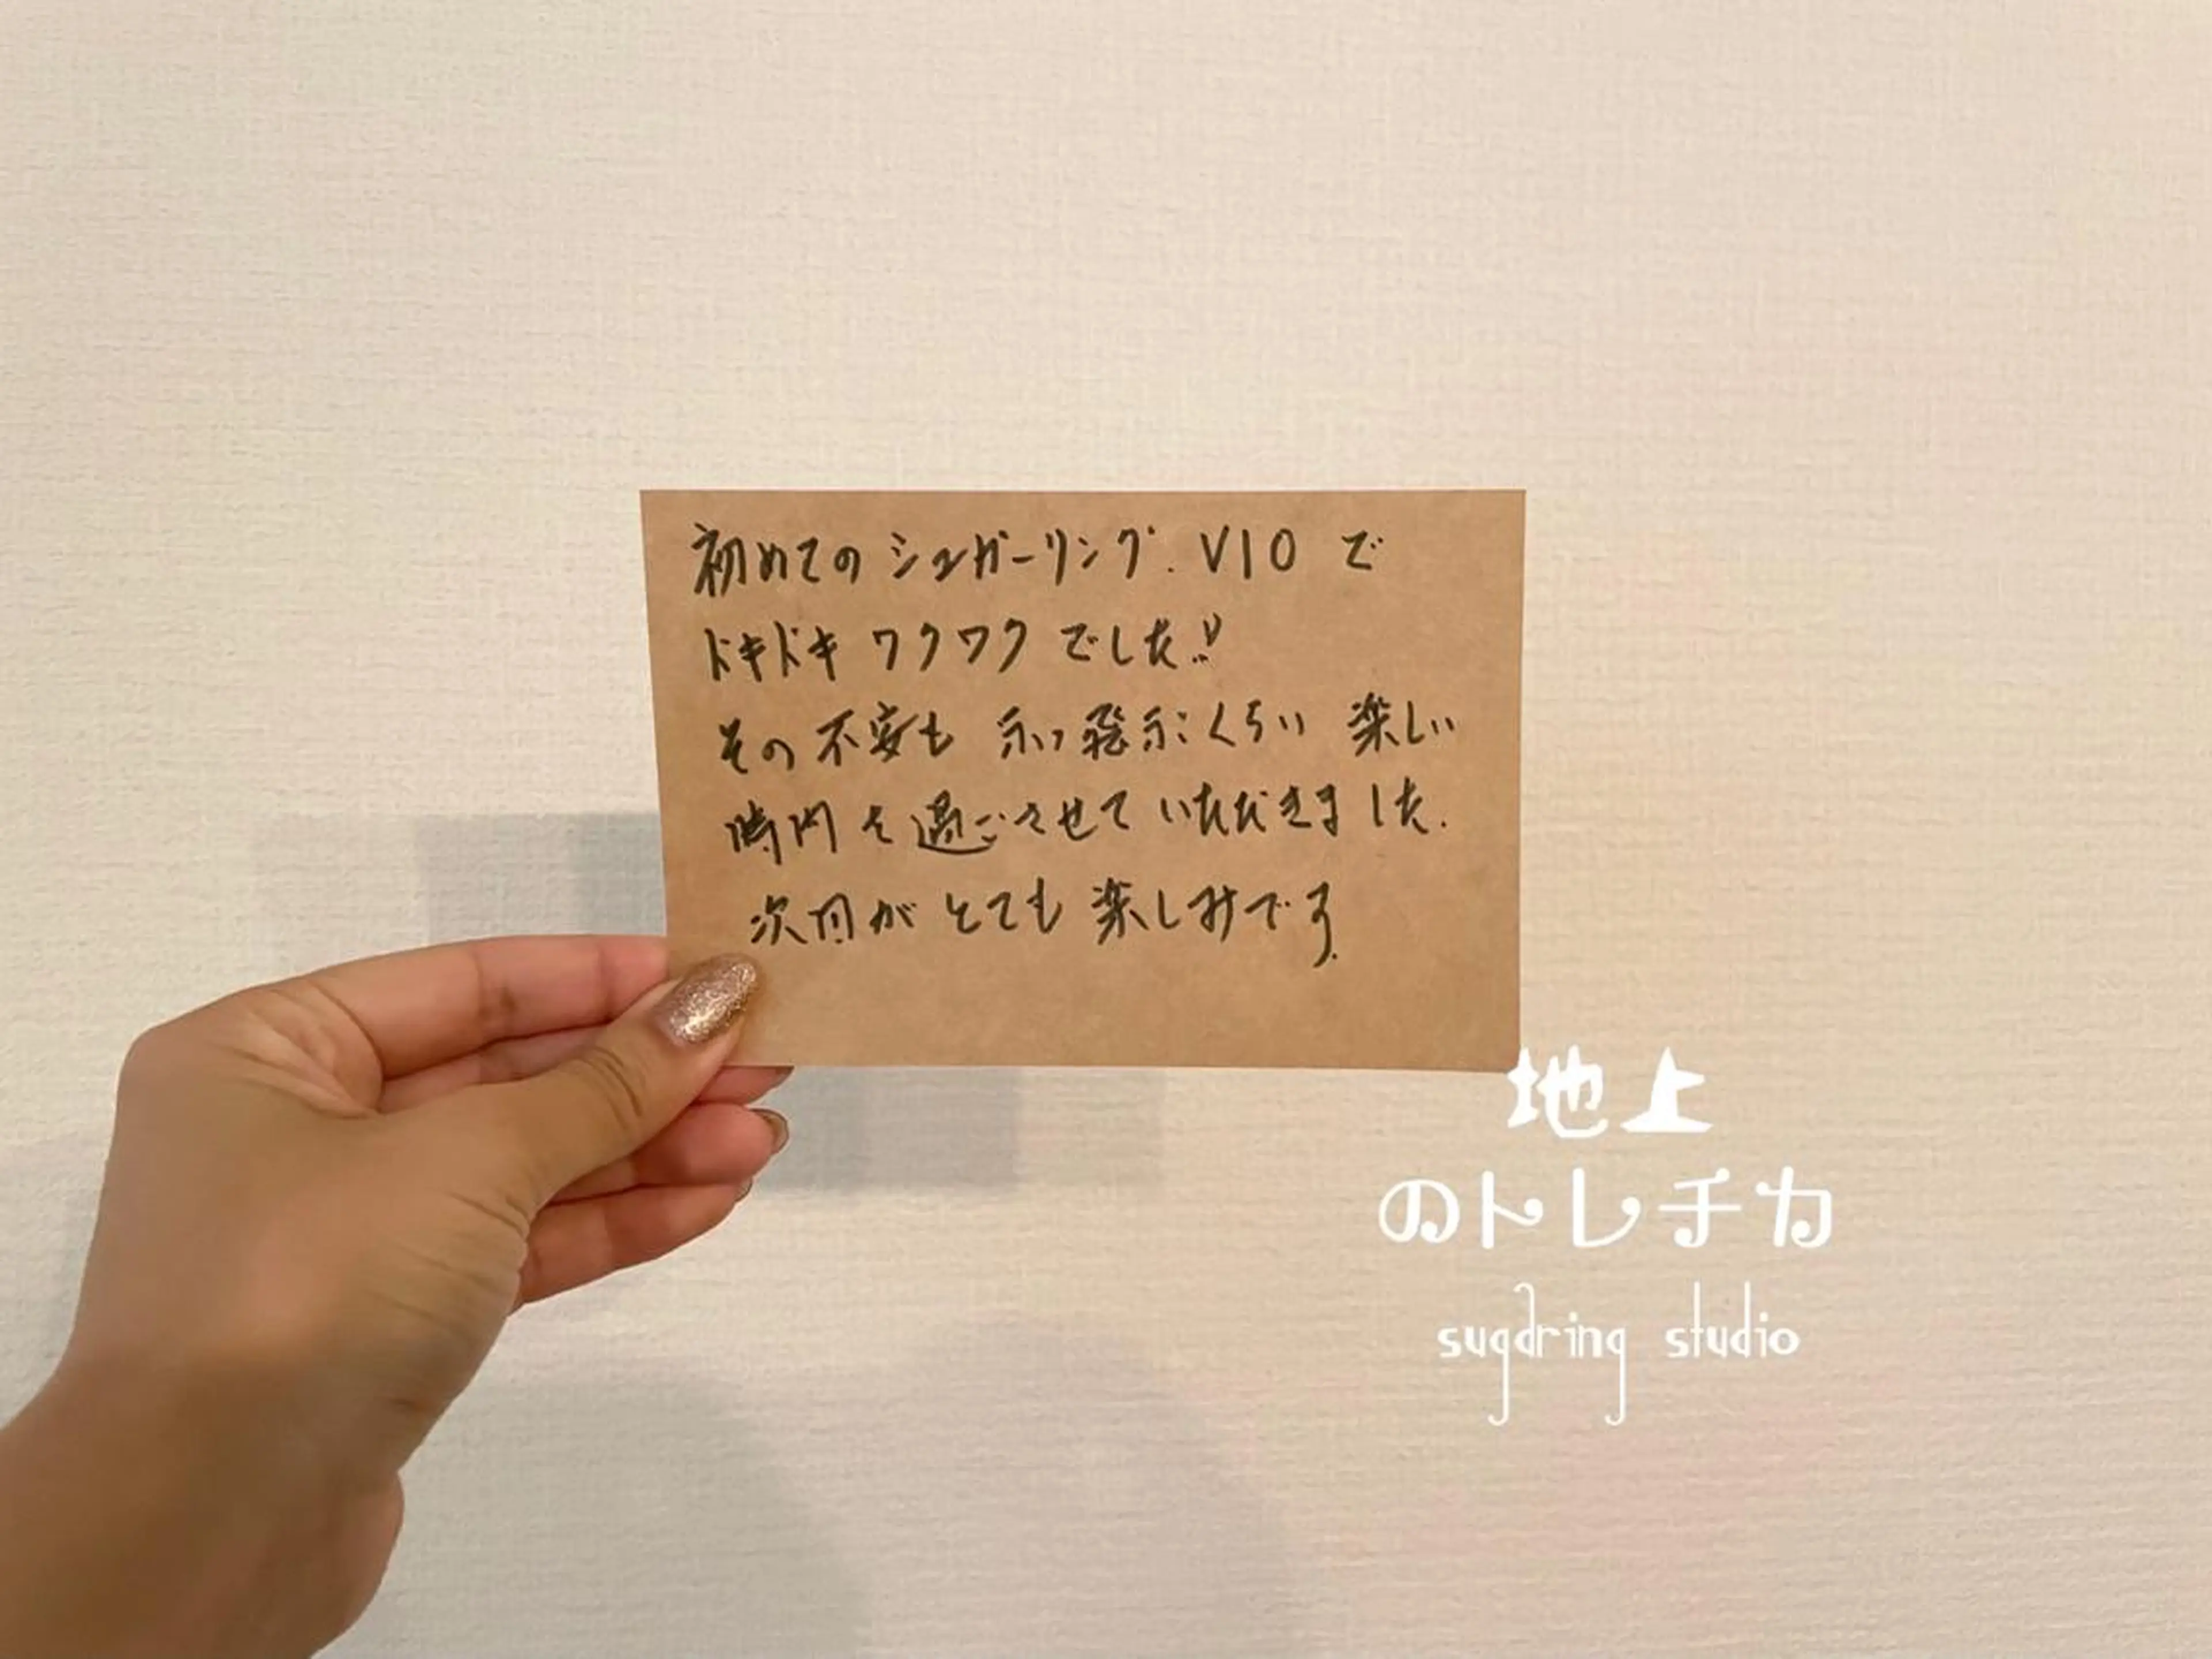 初めてのシュガーリング. VIO で
ドキドキ ワクワク でした!!
その不安も ふっ飛ぶくらい 楽しい
時間を過ごさせていただきました.
次回がとても楽しみです.
地上
のトレチカ
sugaring studio